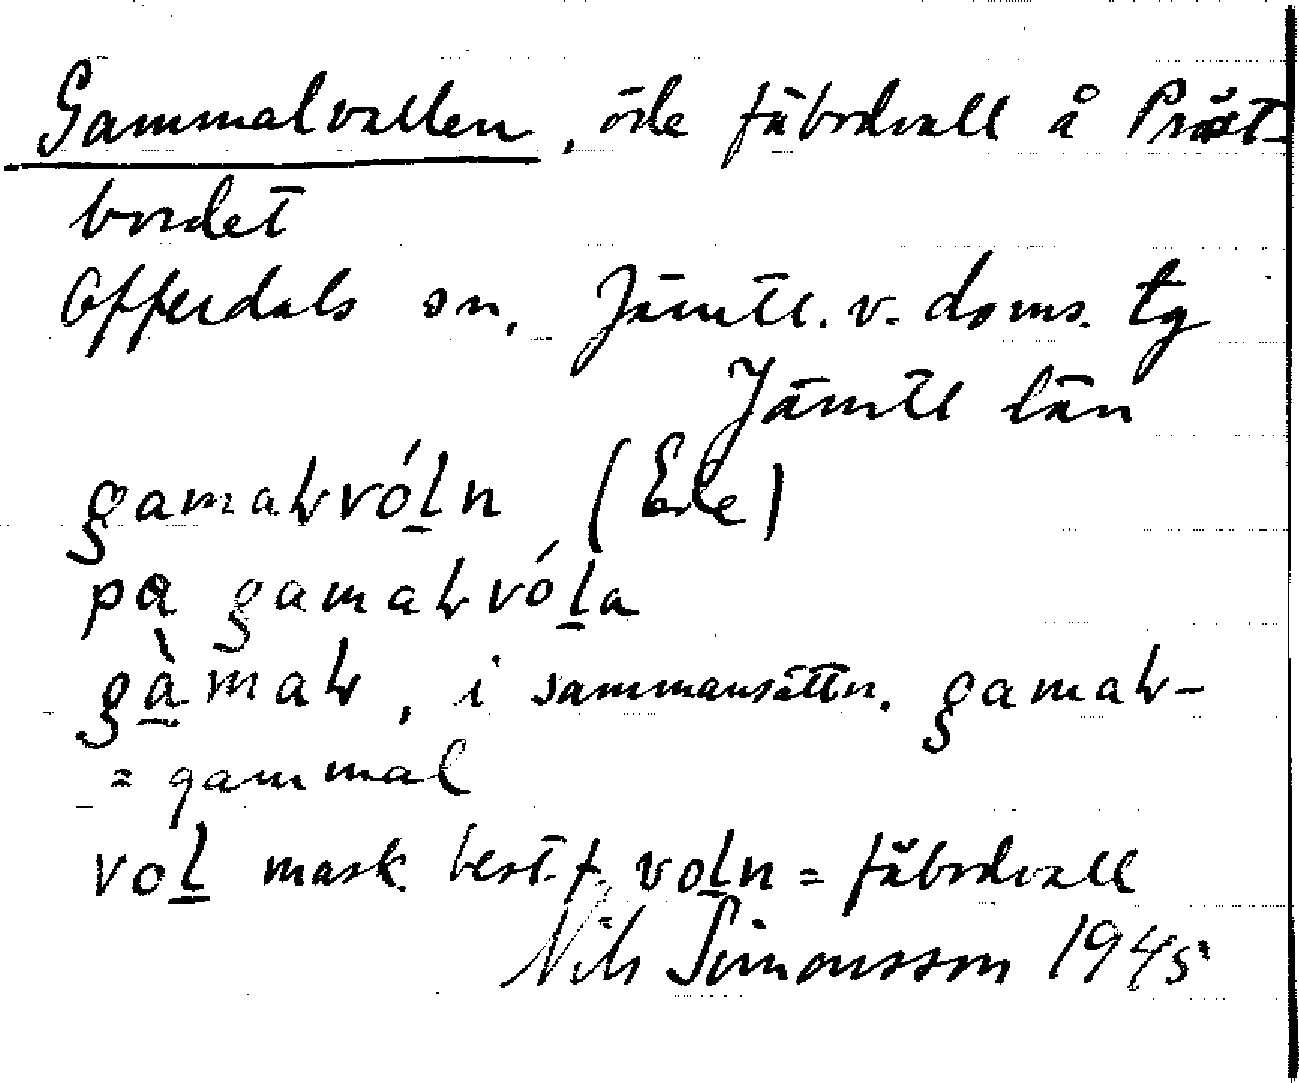 Gammalvallen, öde fäbodvall å Präst-
bordet
Offerdals sn, Jämtl. v. doms. tg
Jämtl län
gamaɫvól̲n (Ede)
pa gamaɫvól̲a
gà̲maɫ, i sammansättn. gamaɫ-
= gammal
vol̲ mask. best. f. vol̲n = fäbodvall
Nils Simonsson 1945